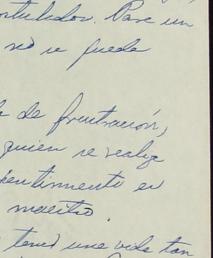 tulados. Para un
no se puede
de frustración,
quien se realiza
sentimiento en
maestro.
tener una vida tan